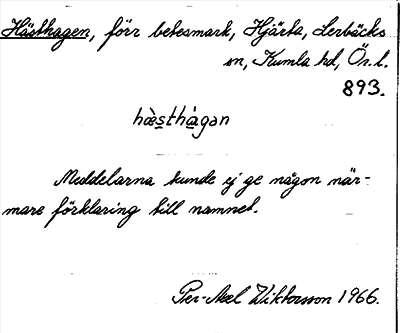 Hästhagen, förr betesmark, Hjärta, Lerbäcks
sn, Kumla hd, Ör. l.
893.
hæ̀sthágan
Meddelarna kunde ej ge någon när-
mare förklaring till namnet.
Per-Axel Wiktorsson 1966.